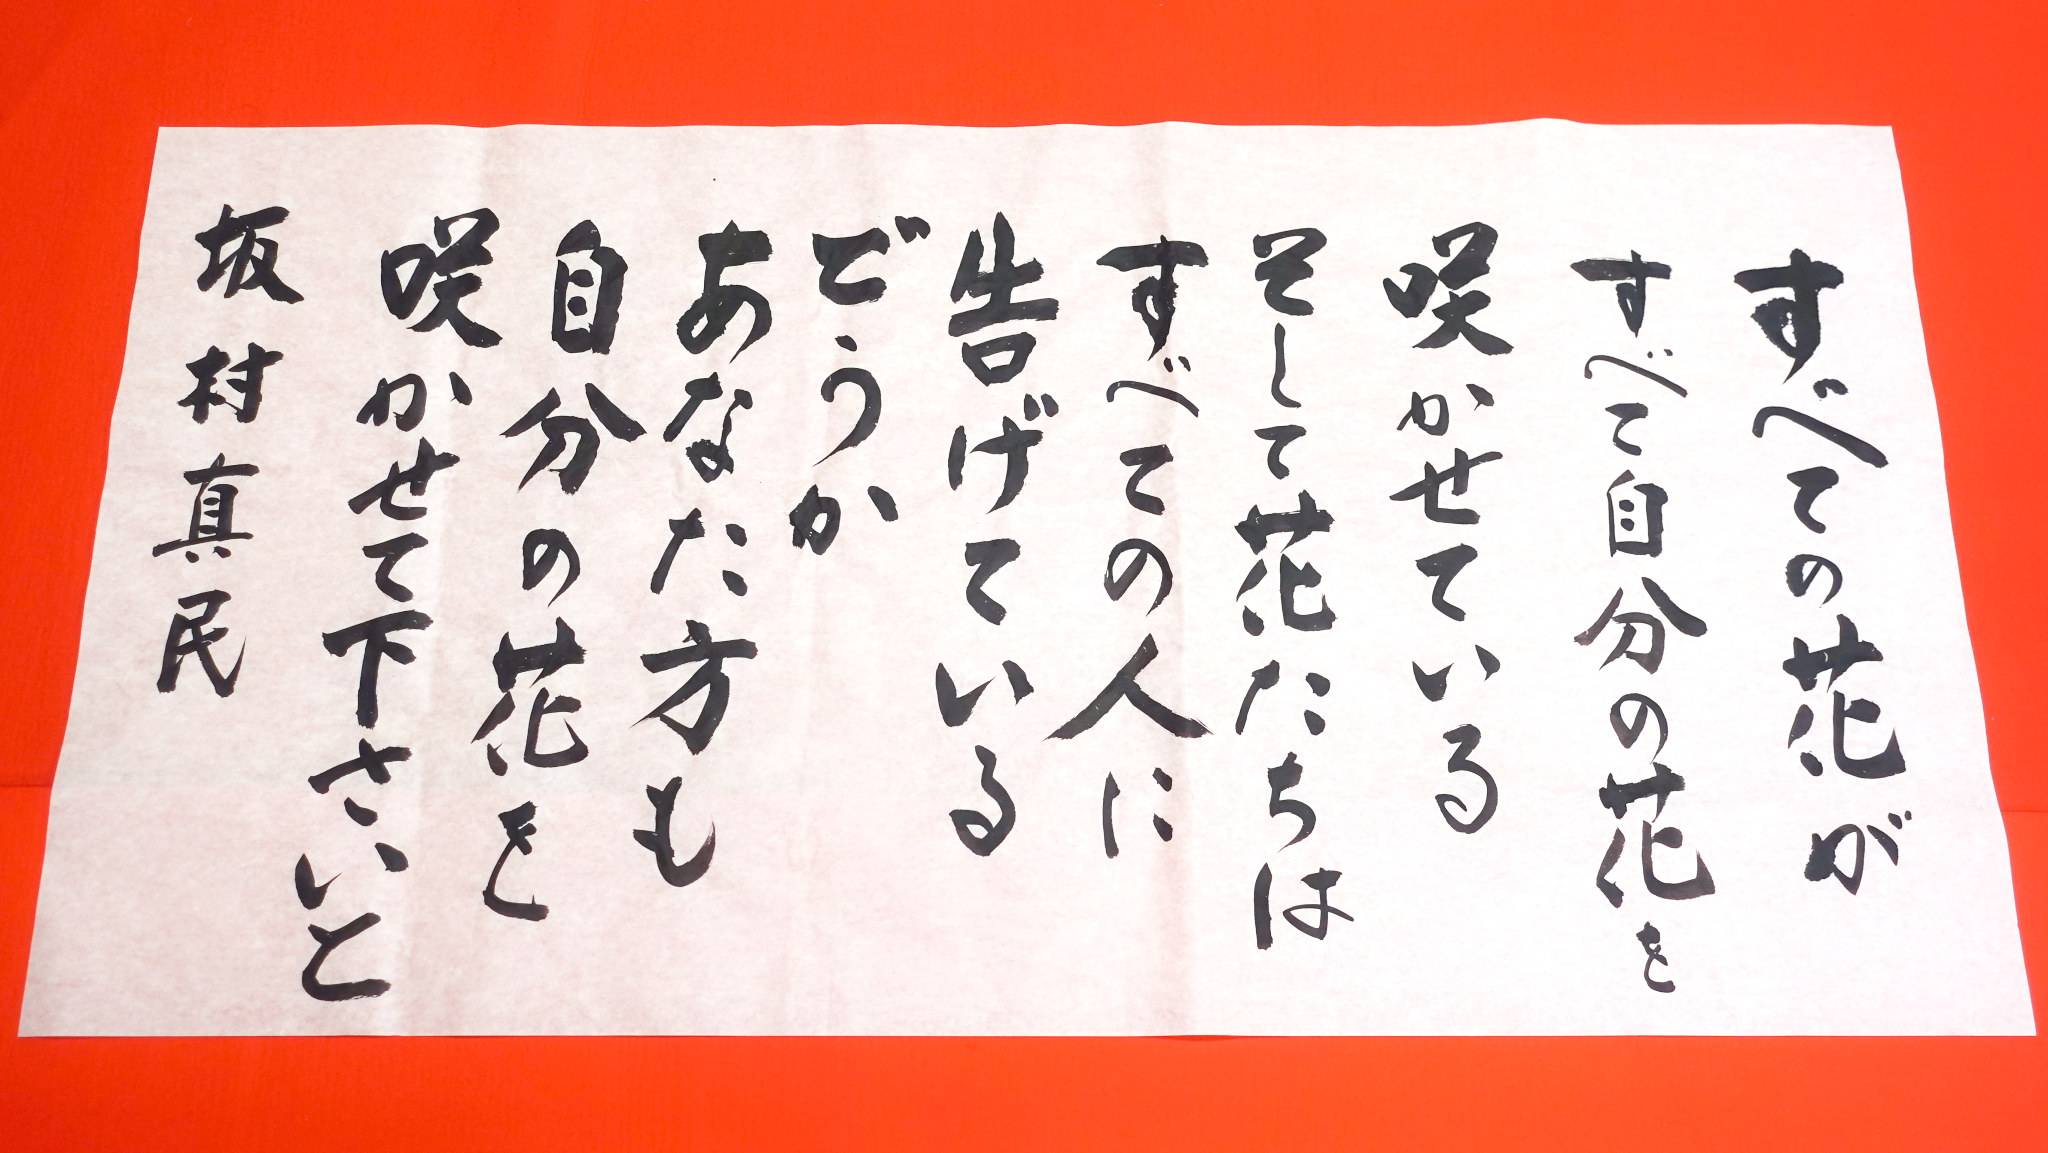 すべての花が
すべて自分の花を
咲かせている
そして花たちは
すべての人に
告げている
どうか
あなた方も
自分の花を
咲かせて下さいと
坂村真民